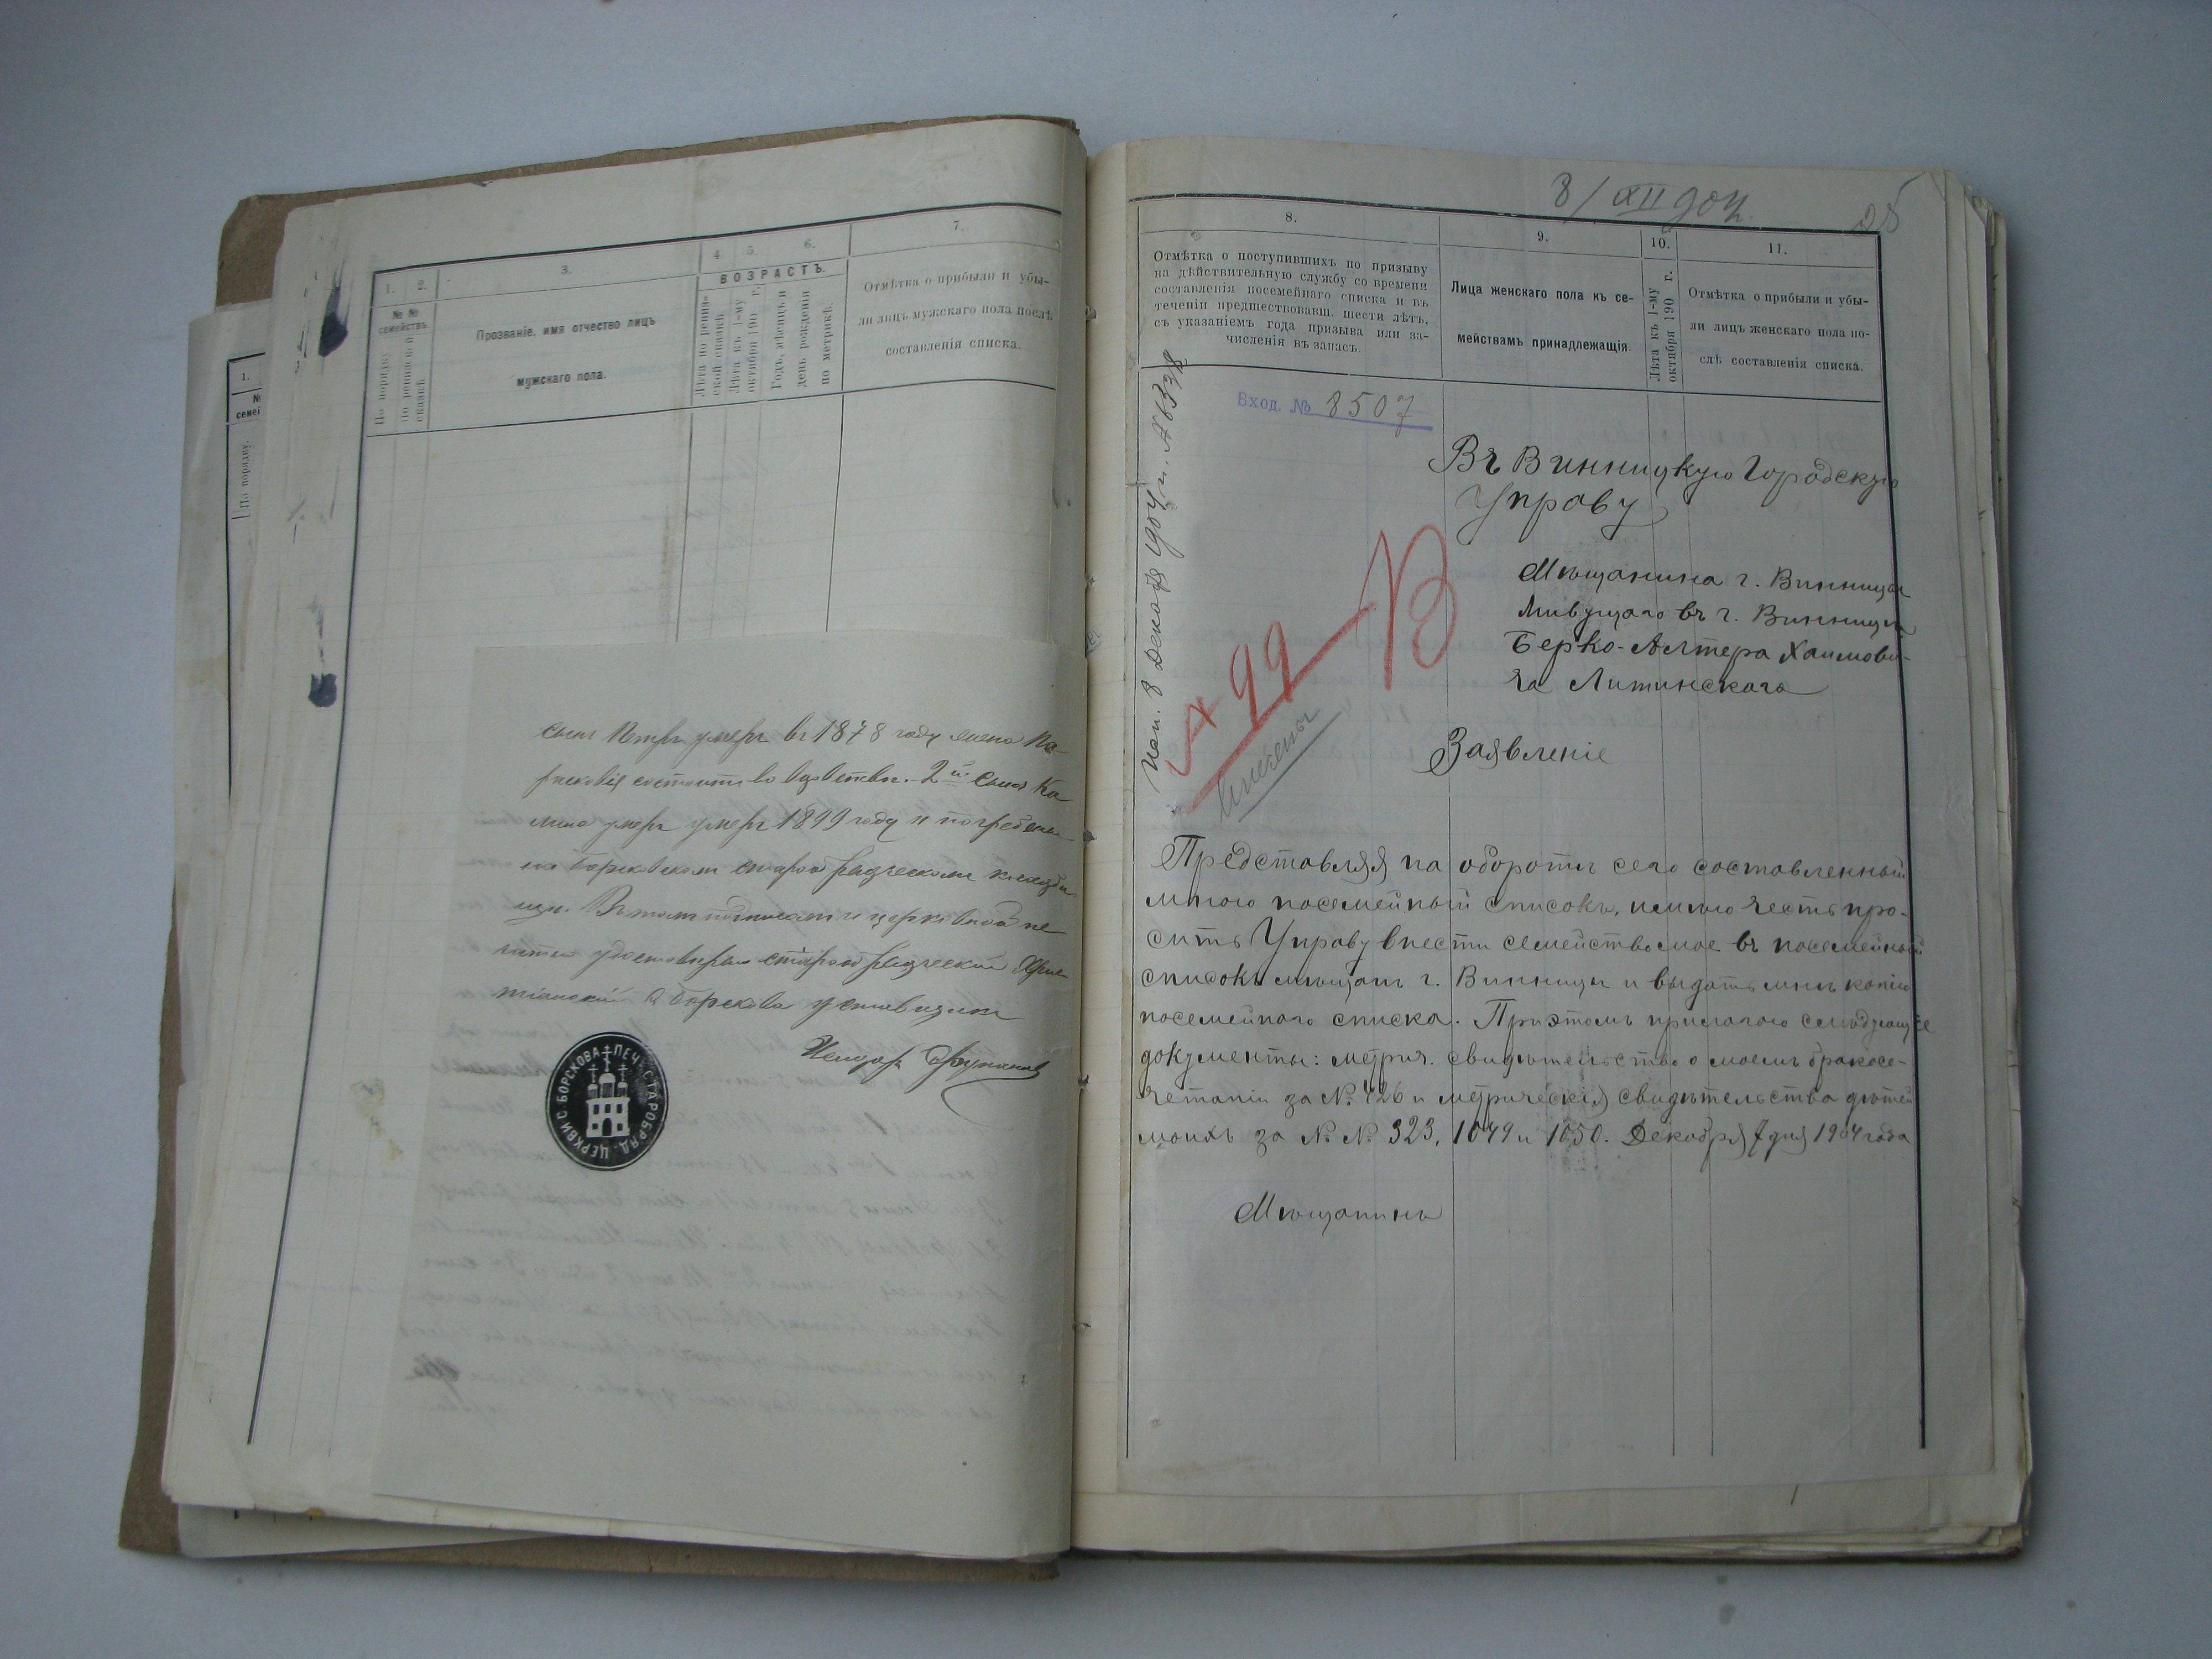 1.
№
семеи
По порядку.
1. 2. 3. 4. 5. 6. 7.
№ №
семействъ.
По порядку.
По ревизской
сказкѣ.
Прозваніе, имя отчество лицъ
мужскаго пола.
ВОЗРАСТЪ.
Лѣта по ревиз-
ской сказкѣ.
Лѣта къ 1-му
октября 190 г.
Годъ, мѣсяцъ и
день рожденія
по метрикѣ.
Отмѣтка о прибыли и убы-
ли лицъ мужскаго пола послѣ
составленія списка.
сынъ Петръ умеръ въ 1878 году жена Па-
расковія состоитъ во вдовствѣ. 2й сынъ
умеръ умеръ 1899 году и погребенъ
на Борсковскомъ старообрядческомъ кладби
щи. Въ томъ подписомъ и церковной пе
чатью удостовѣряю старообрядческій
с Борскова
ПЕЧ. СТАРОБРЯД. ЦЕРКВИ С. БОРСКОВА
8/XII 904
8. 9. 10. 11.
Отмѣтка о поступившихъ по призыву
на дѣйствительную службу со времени
составленія посемейнаго списка и въ
теченіи предшествовавш. шести лѣтъ,
съ указаніемъ года призыва или за-
численія въ запасъ.
Лица женскаго пола къ се-
мействамъ принадлежащія.
Лѣта къ 1-му
октября 190 г.
Отмѣтка о прибыли и убы-
ли лицъ женскаго пола по-
слѣ составленія списка.
Вход. № 8507
Исп. 8 Декабря 1904 г.
№ 99 В
Въ Винницкую Городскую
Управу
Мѣщанина г. Винницы
живущаго въ г. Винницѣ
Берко-Алтера Хаимови-
ча Литинскаго
Заявленіе
Представляя на оборотѣ сего составленный
мною посемейный списокъ, имѣю честь про-
сить Управу внести семейство мое въ посемейный
списокъ мѣщанъ г. Винницы и выдать мнѣ копію
посемейнаго списка. При этомъ прилагаю слѣдующіе
документы: метрич. свидѣтельство о моемъ бракосо-
четаніи за № 426 и метрическія свидѣтельства дѣтей
моихъ за № № 323, 1049 и 1050. Декабря 7 дня 1904 года
Мѣщанинъ